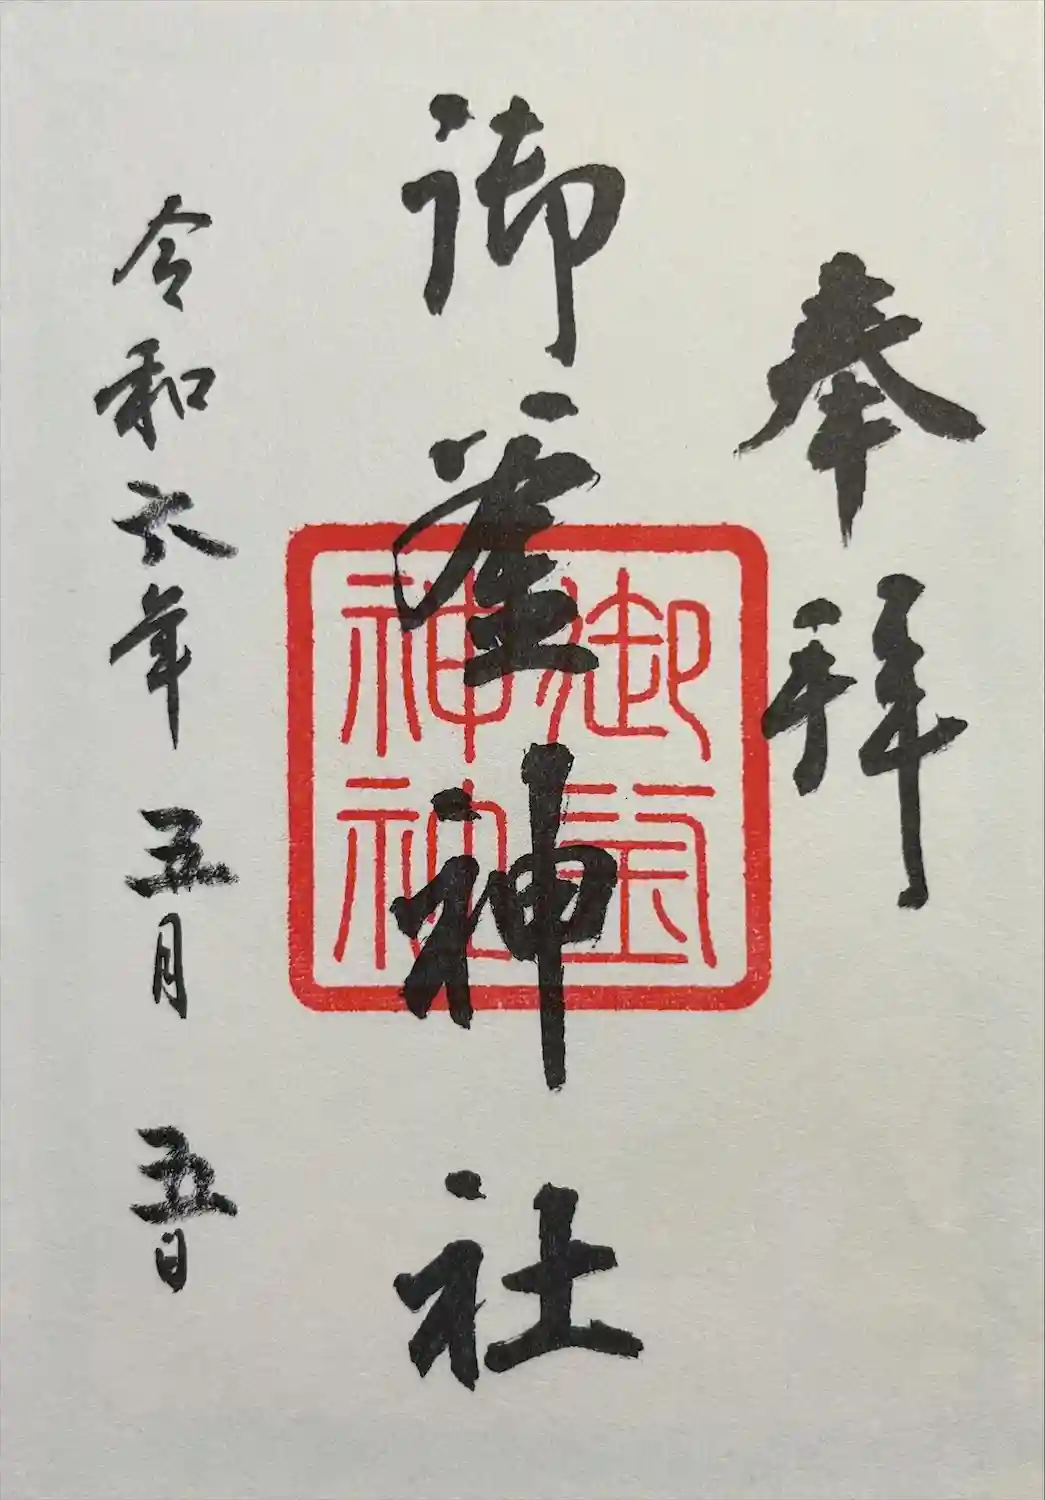 奉拝
御釜神社
御釜神社
令和六年 五月 五日